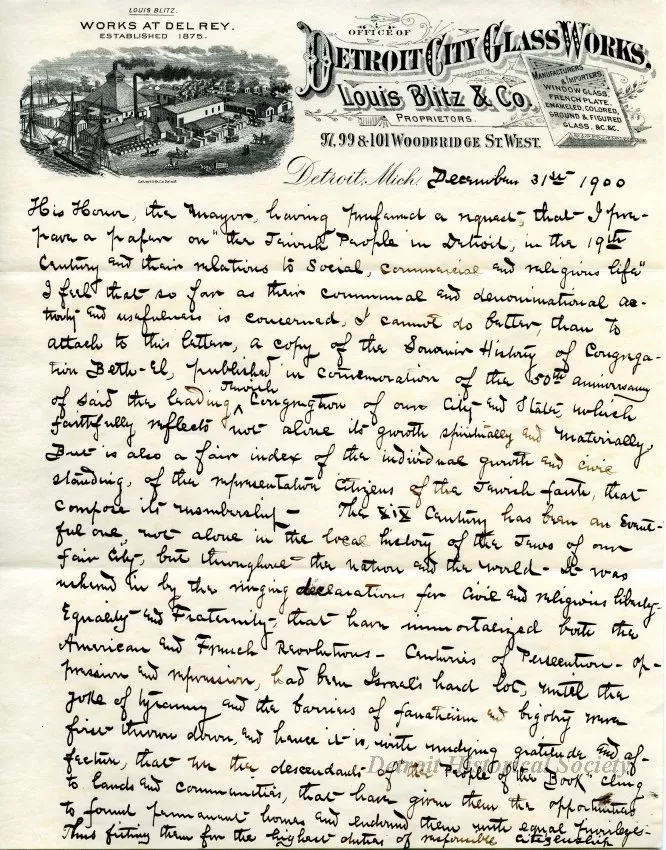 LOUIS BLITZ.
WORKS AT DEL REY.
ESTABLISHED 1875.
OFFICE OF
DETROIT CITY GLASS WORKS.
Louis Blitz & Co.
PROPRIETORS.
97, 99 & 101 WOODBRIDGE ST. WEST.
MANUFACTURERS
& IMPORTERS,
WINDOW GLASS,
FRENCH PLATE,
ENAMELED, COLORED,
GROUND & FIGURED
GLASS, &C. &C.
Detroit, Mich. December 31st 1900
His Honor, the Mayor, having preferred a request, that I pre-
pare a paper on "the Jewish People in Detroit, in the 19th
Century and their relations to Social, commercial and religious life"
I feel that so far as their communal and denominational ac-
tivity and usefulness is concerned, I cannot do better, than to
attach to this letter, a copy of the Souvenir History of Congrega-
tion Beth-El, published in comemoration of the 50th anniversary
of said the leading Jewish Congregation of our City and State, which
faithfully reflects not alone its growth spiritually and materially,
But is also a fair index of the individual growth and civic
standing, of the representative Citizens of the Jewish faith, that
compose its membership - The XIX Century has been an Event-
ful one, not alone in the local history of the Jews of our
Fair City, but throughout the nation and the world - It was
ushered in by the ringing declarations for Civil and religious liberty-
Equality and Fraternity, that have immortalized both the
American and French Revolutions - Centuries of Persecution - op-
pression and repression, had been Israel's hard lot, until the
yoke of tyranny and the barriers of fanaticism and bigotry were
first thrown down, and hence it is, with undying gratitude and af-
fection, that we the descendants of the "People of the Book" cling
to lands and communities, that have given them the opportunities
to found permanent homes and endowed them with equal privileges-
Thus fitting them for the highest duties of responsible citizenship
Detroit Historical Society